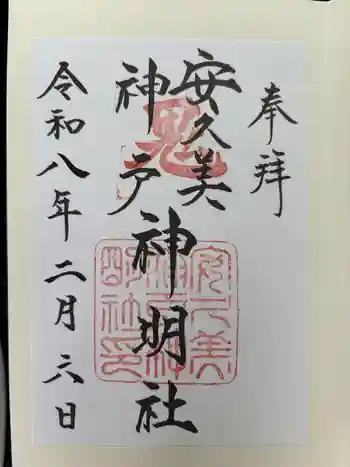 奉拝
安久美
神戸
神明社
令和八年二月六日
鬼
安久美
神戸神
明社印